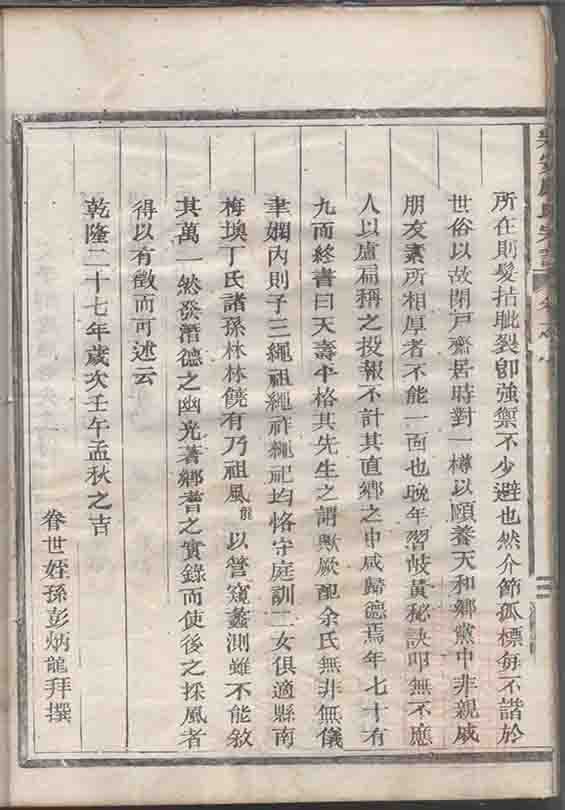 所在則髮指眥裂卽強禦不少避也然介節孤標每不諧於
世俗以故閉戶齋居時對一樽以頤養天和鄉黨中非親戚
朋友素所相厚者不能一面也晚年習岐黃秘訣叩無不應
人以盧扁稱之投報不計其直鄉之中咸歸德焉年七十有
九而終書曰天壽平格其先生之謂歟厥配余氏無非無儀
聿嫻內則子三繩祖繩祚繩祀均恪守庭訓二女俱適縣南
梅墺丁氏諸孫林林饒有乃祖風 以管窺蠡測雖不能敘
其萬一然發潛德之幽光著鄉耆之實錄而使後之採風者
得以有徵而可述云
乾隆二十七年歲次壬午孟秋之吉
眷世姪孫彭炳龍拜撰